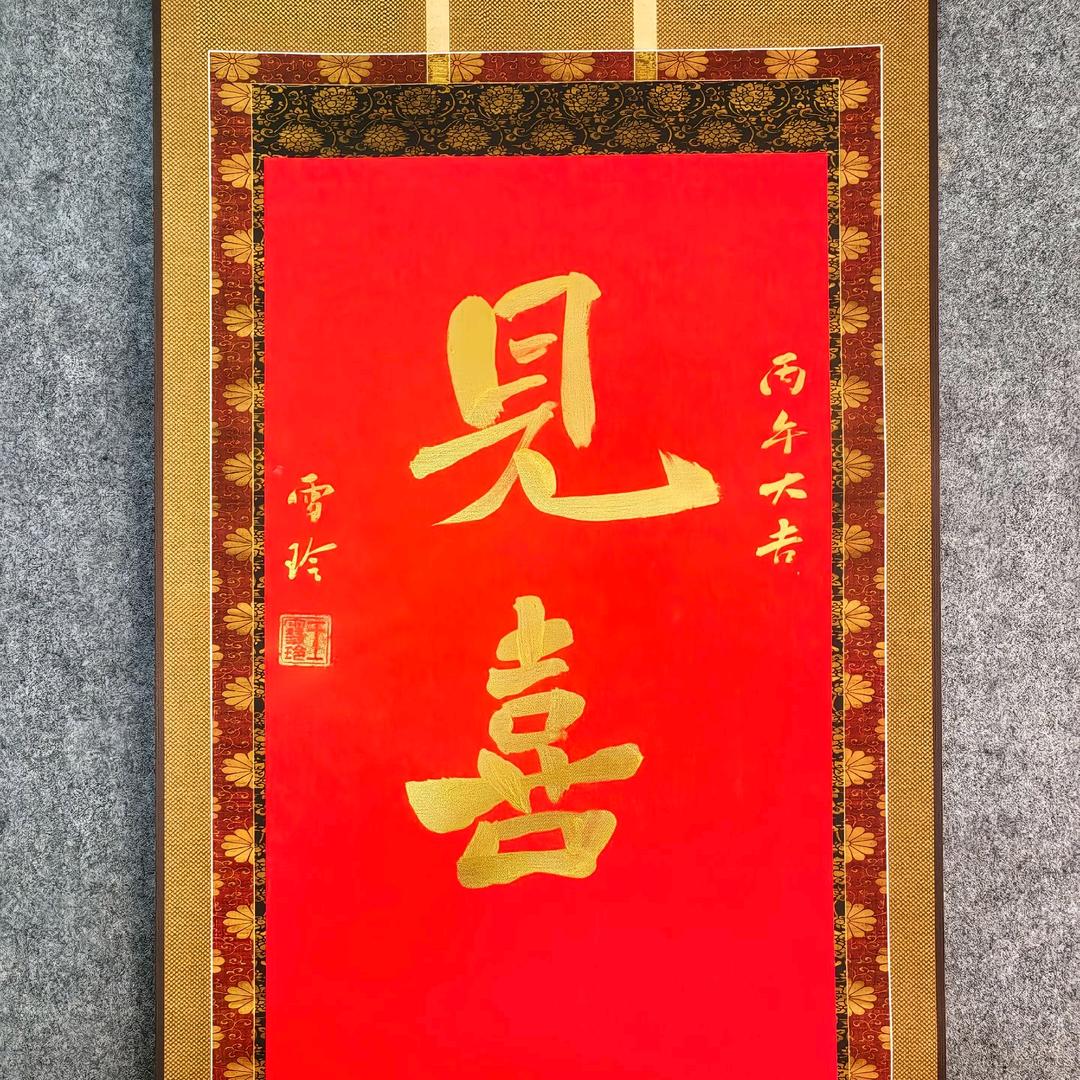 丙午大吉
見喜
雪玲